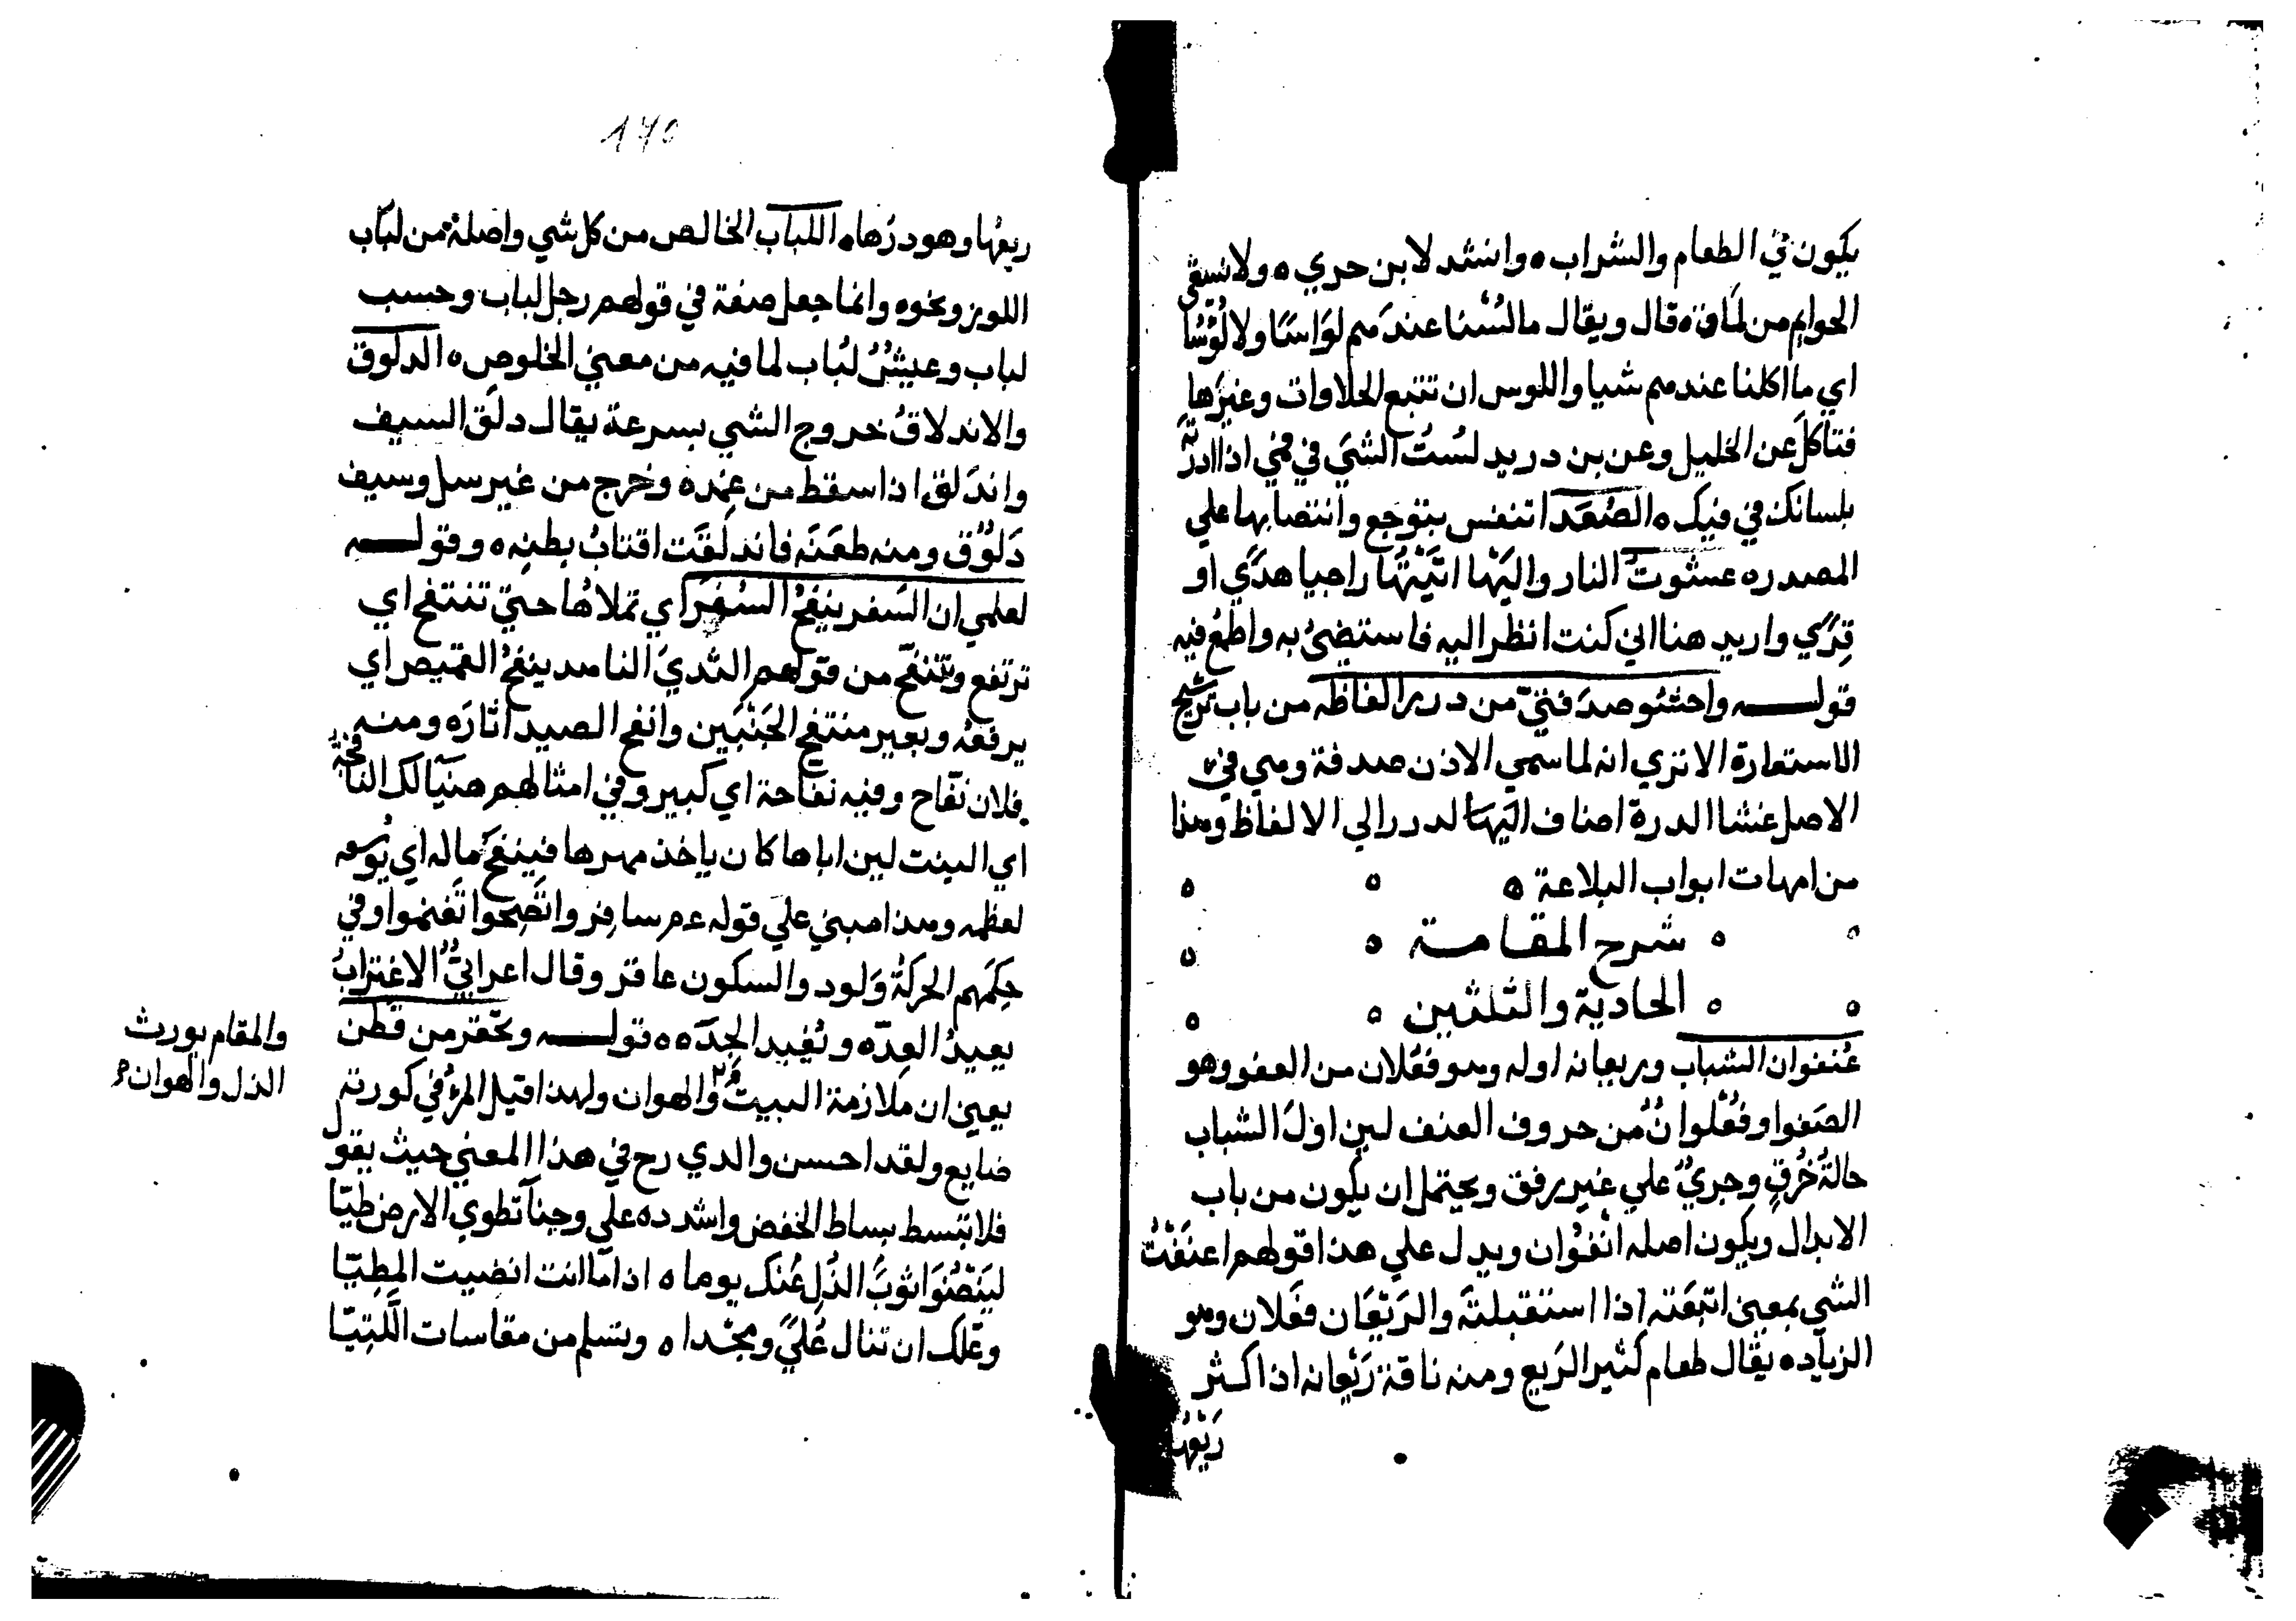 يكون في الطعام والشراب ه وانشد لابن حري ه ولا نسقي
الحوايم من لماق ه قال ويقال ما لُسْنا عندهم لوَاسًا ولا لَؤُسًا
اي ما اكلنا عندهم شيا واللوس ان تتبع الحلاوات وغيرَها
فتاكل عن الخليل وعن بن دريد لُسْتُ الشيَ في فمي اذا ادرتَه
بلسانك في فيك ه الصُعَدَا تنفس بتوجع وانتصابها علي
المصدر ه عشوتُ النار واليْها اتَيْتُهَا راجيا هدًي او
قِرًي واريد هنا اني كنت انظر اليه فاستضئُ به واطمعُ فيه
قولـــه واحشو صدَفتيّ من درر الفاظه من باب ترشيح
الاستعارة الا تري انه لما سمي الاذن صدفة وهي في
الاصل غشا الدرة اضاف اليهَا لدرر الي الالفاظ وهذا
من امهات ابواب البلاغة ه
شرح المقامـــة
الحادية والثلثين
عُنفوان الشباب وريعانه اوله وهو فعُلان من العفو وهو
الصَفو او فُعْلوانٌ من حروف العنف لين اوّلَ الشباب
حالةُ خُرْقٍ وجريٌ علي غير رفق ويحتمل ان يكون من باب
الابدال ويكون اصله انْفوُان ويدل علي هذا قولهم اعنَفْتُ
الشي بمعني ائتنفته اذا استقبلتَه والرَيْعَان فعَلان وهو
الزياده يقال طعام كثير الرَيع ومنه ناقة رَيْعانه اذا كـثر
رَيْعُها
١٧٥
ريعُها وهو درُها ه اللباب الخالص من كل شي واصلهُ من لباب
اللوز ونحوه وانما جعل صفة في قولهم رجل لباب وحسب
لباب وعيشٌ لُباب لما فيه من معني الخلوص ه الدلوق
والاندلاقُ خروج الشي بسرعة يقال دلَق السيف
واندَلق اذا سقط من غمِده وخرج من غير سل وسيف
دَلُوْق ومنه طعَنَه فاندلقَت اقتابُ بطنِه ه وقولـــه
لعلمي ان السَفر ينفجُ السُفَرَ اي تملاهَا حتيّ تنتفج اي
ترتفع وتنفّج من قولهم الثديُ الناهد ينفجُ القميص اي
يرفعُه وبعير منتفج الجَنْبَين وانفج الصيد اثارَه ومنه
فلان نفّاج وفيه نفّاجة اي كبير وفي امثالهم هنيَا لك النافجةُ
اي البنت لين اباها كان ياخذ مهرها فينفجُ مالَه اي يُوسعه
لعظمه وهذا مبني علي قوله عم سافِروا تَصِحّوا تغنموا وفي
حِكمَهِم الحركةُ وَلود والسكون عاقر وقال اعرابيٌّ الاغترابُ
يعيدُ العِدّه ويُفيد الجِدّه ه ه قولـــه وتحقر من قطن
يعني ان ملازمة البيت والهوان ولهذا قيل المرُ في كورته
ضايع ولقد احسن والدي رح في هذا المعني حيث يقول
فلا تبسط بساط الخفض واشدد ه علي وجناَ تطوي الارض طيّا
ليَنْضُوَا ثوبَ الذُلِ عُنك يوما ه اذا ما انت انضيت المِطِيّا
وعَلّك ان تنال عُليً ومجْدا ه وتسلم من مقاسات اللَتِيّا
والمقام يورث
الذل والهوان